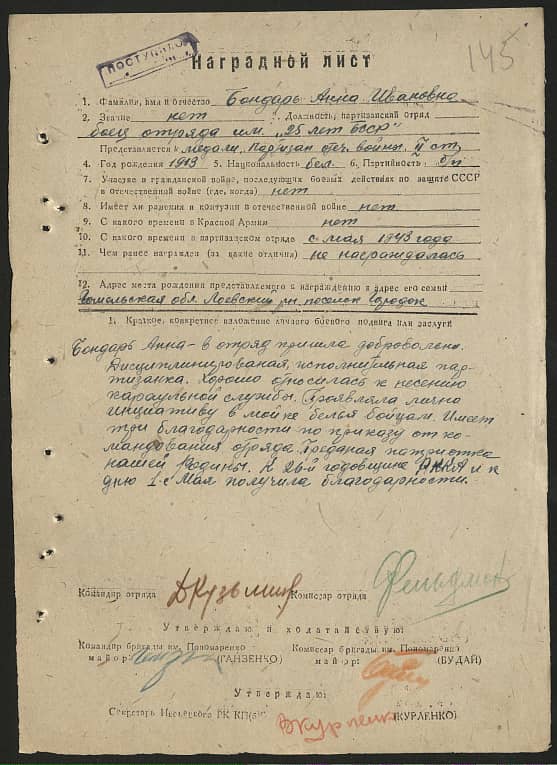 145
ПОСТУПИЛО
Наградной лист
1. Фамилия, имя и отчество Бондарь Анна Ивановна
2. Звание нет 3. Должность, партизанский отряд
боец отряда им. „25 лет БССР"
Представляется к медали „Партизан отеч. войны" II ст.
4. Год рождения 1913 5. Национальность бел. 6. Партийность б/п
7. Участие в гражданской войне, последующих боевых действиях по защите СССР
в отечественной войне (где, когда) нет
8. Имеет ли ранения и контузии в отечественной войне нет
9. С какого времени в Красной Армии нет
10. С какого времени в партизанском отряде с мая 1943 года
11. Чем ранее награжден (за какие отличия) не награждалась
12. Адрес места рождения представляемого к награждению и адрес его семьи
Гомельская обл. Лоевский рн. поселок Городок
1. Краткое, конкретное изложение личного боевого подвига или заслуги
Бондарь Анна - в отряд пришла доброволено.
Дисциплинированая, исполнительная пар-
тизанка. Хорошо относилась к несению
караульной службы. Проявляла лично
инициативу в мойке белья бойцам. Имеет
три благодарности по приказу от ко-
мандования отряда. Преданая патриотка
нашей Родины. К 26-й годовщине РККА и к
дню 1-е Мая получила благодарности.
Командир отряда ДКузьмин Комиссар отряда Фельдман
Утверждаю и ходатайствую:
Командир бригады им. Пономаренко Комиссар бригады им. Пономаренко
майор: (ГАНЗЕНКО) майор: (БУДАЙ)
Утверждаю:
Секретарь Ивьевского РК КП(б)Б ВКурленко (КУРЛЕНКО)